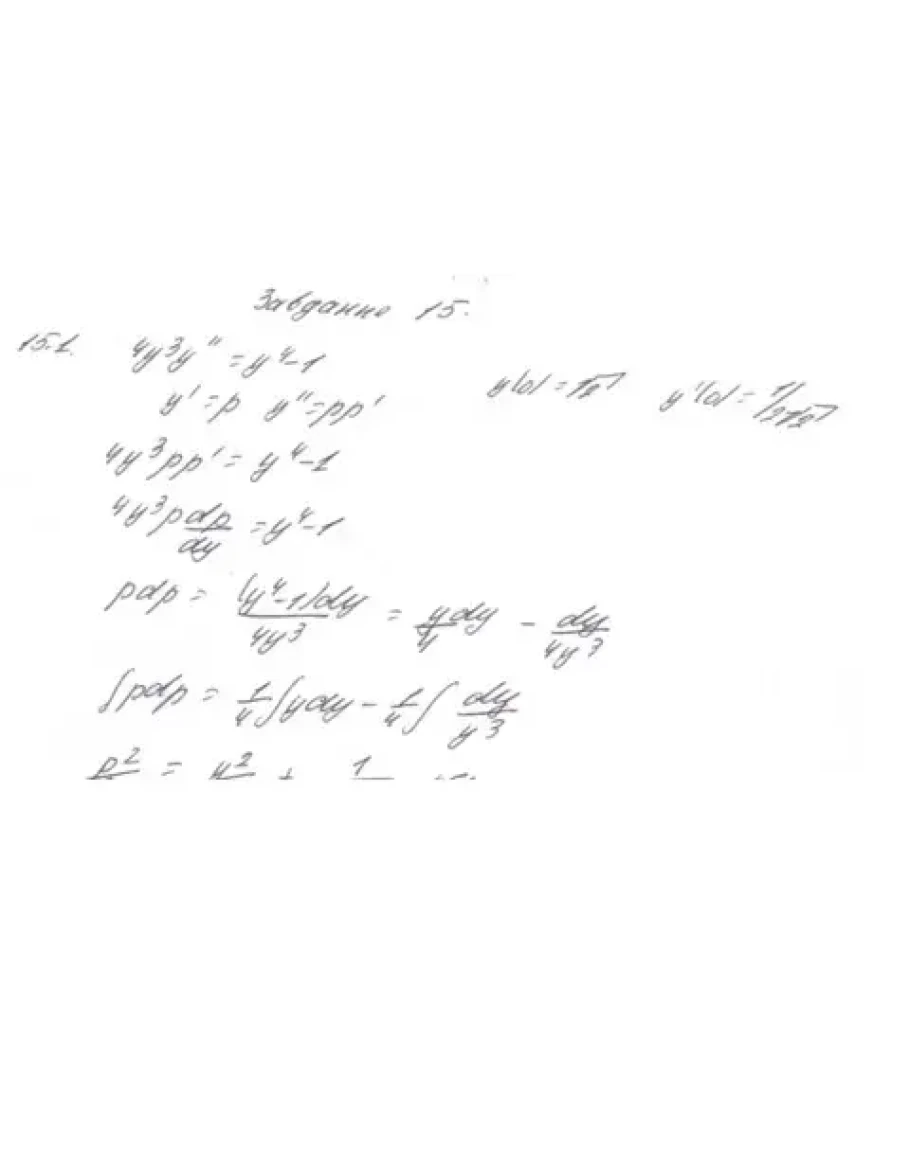 Завдання 15.
15.1. 4y³y'' = y⁴-1 y(0) = √2 y'(0) = 1/2√2
y' = p y'' = pp'
4y³pp' = y⁴-1
4y³p dp/dy = y⁴-1
pdp = (y⁴-1)dy/4y³ = y/4 dy - dy/4y³
∫pdp = 1/4∫ydy - 1/4∫ dy/y³
p² = y² + 1